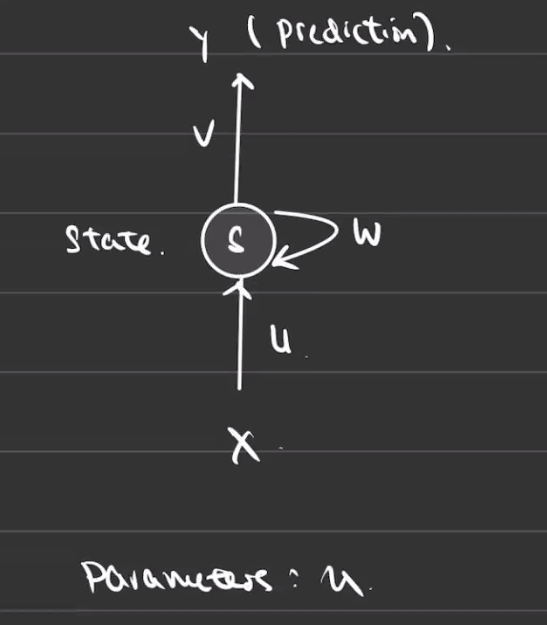 y (prediction).
V
State. S W
u
X
Parameters: u